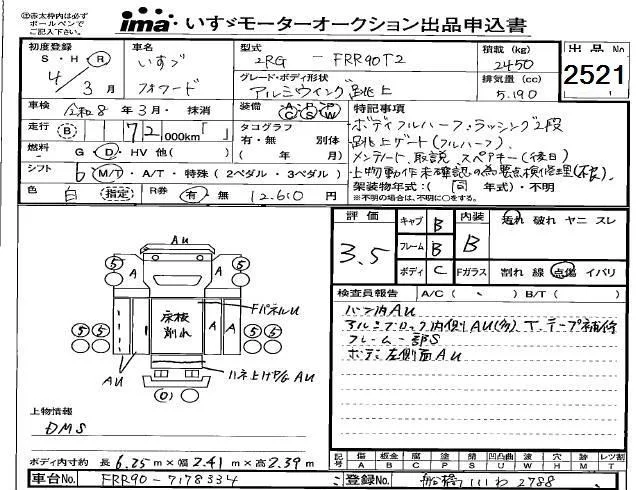 ㊟赤太枠内は必ず
ボールペンで
ご記入下さい。
ima いすゞモーターオークション出品申込書
初度登録 S・H・R 4/3月
車名 いすゞ フォワード
型式 2RG - FRR90T2
積載(kg) 2450
出品No 2521
グレード・ボディ形状 アルミウイング跳上
排気量(cc) 5.190
車検 令和8年3月・抹消
装備 A・P・P C S W
特記事項
走行 B 172,000km「 」
タコグラフ 有・無 別体 ( 年 月)
ボディフルハーフ・ラッシング2段
跳上ゲート(フルハーフ)
燃料 G・D・HV 他( )
メンテノート、取説、スペアキー(後日)
シフト 6 M/T・A/T・特殊(2ペダル・3ペダル)
上物動作未確認の為要点検修理(不良)
架装物年式:(同 年式)・不明
※不明の場合は、不明に○をする。
色 白 指定
R券 有・無 12,610円
評価 3.5
キャブ B
フレーム B
ボディ C
内装 B
汚れ 破れ ヤニ スレ
Fガラス 割れ 線 点傷 イバリ
検査員報告 A/C( 、 ) B/T( )
バン内AU
アルミブロック内側AU(多)T.テープ補修
フレーム一部S
ボデー左側面AU
AU
5 5 A A
FパネルU
床板
削れ
5 5 5 5
A A
AU
ハネ上げP/G AU
(0)
上物情報
DMS
ボディ内寸約 長6.25m×幅2.41m×高2.39m
記号 傷A 板金B 腐C 塗P 錆S 凹凸曲U 波W 穴H 跡M レツ割T
車台No. FRR90-7178334
登録No. 船橋 いわ 2788